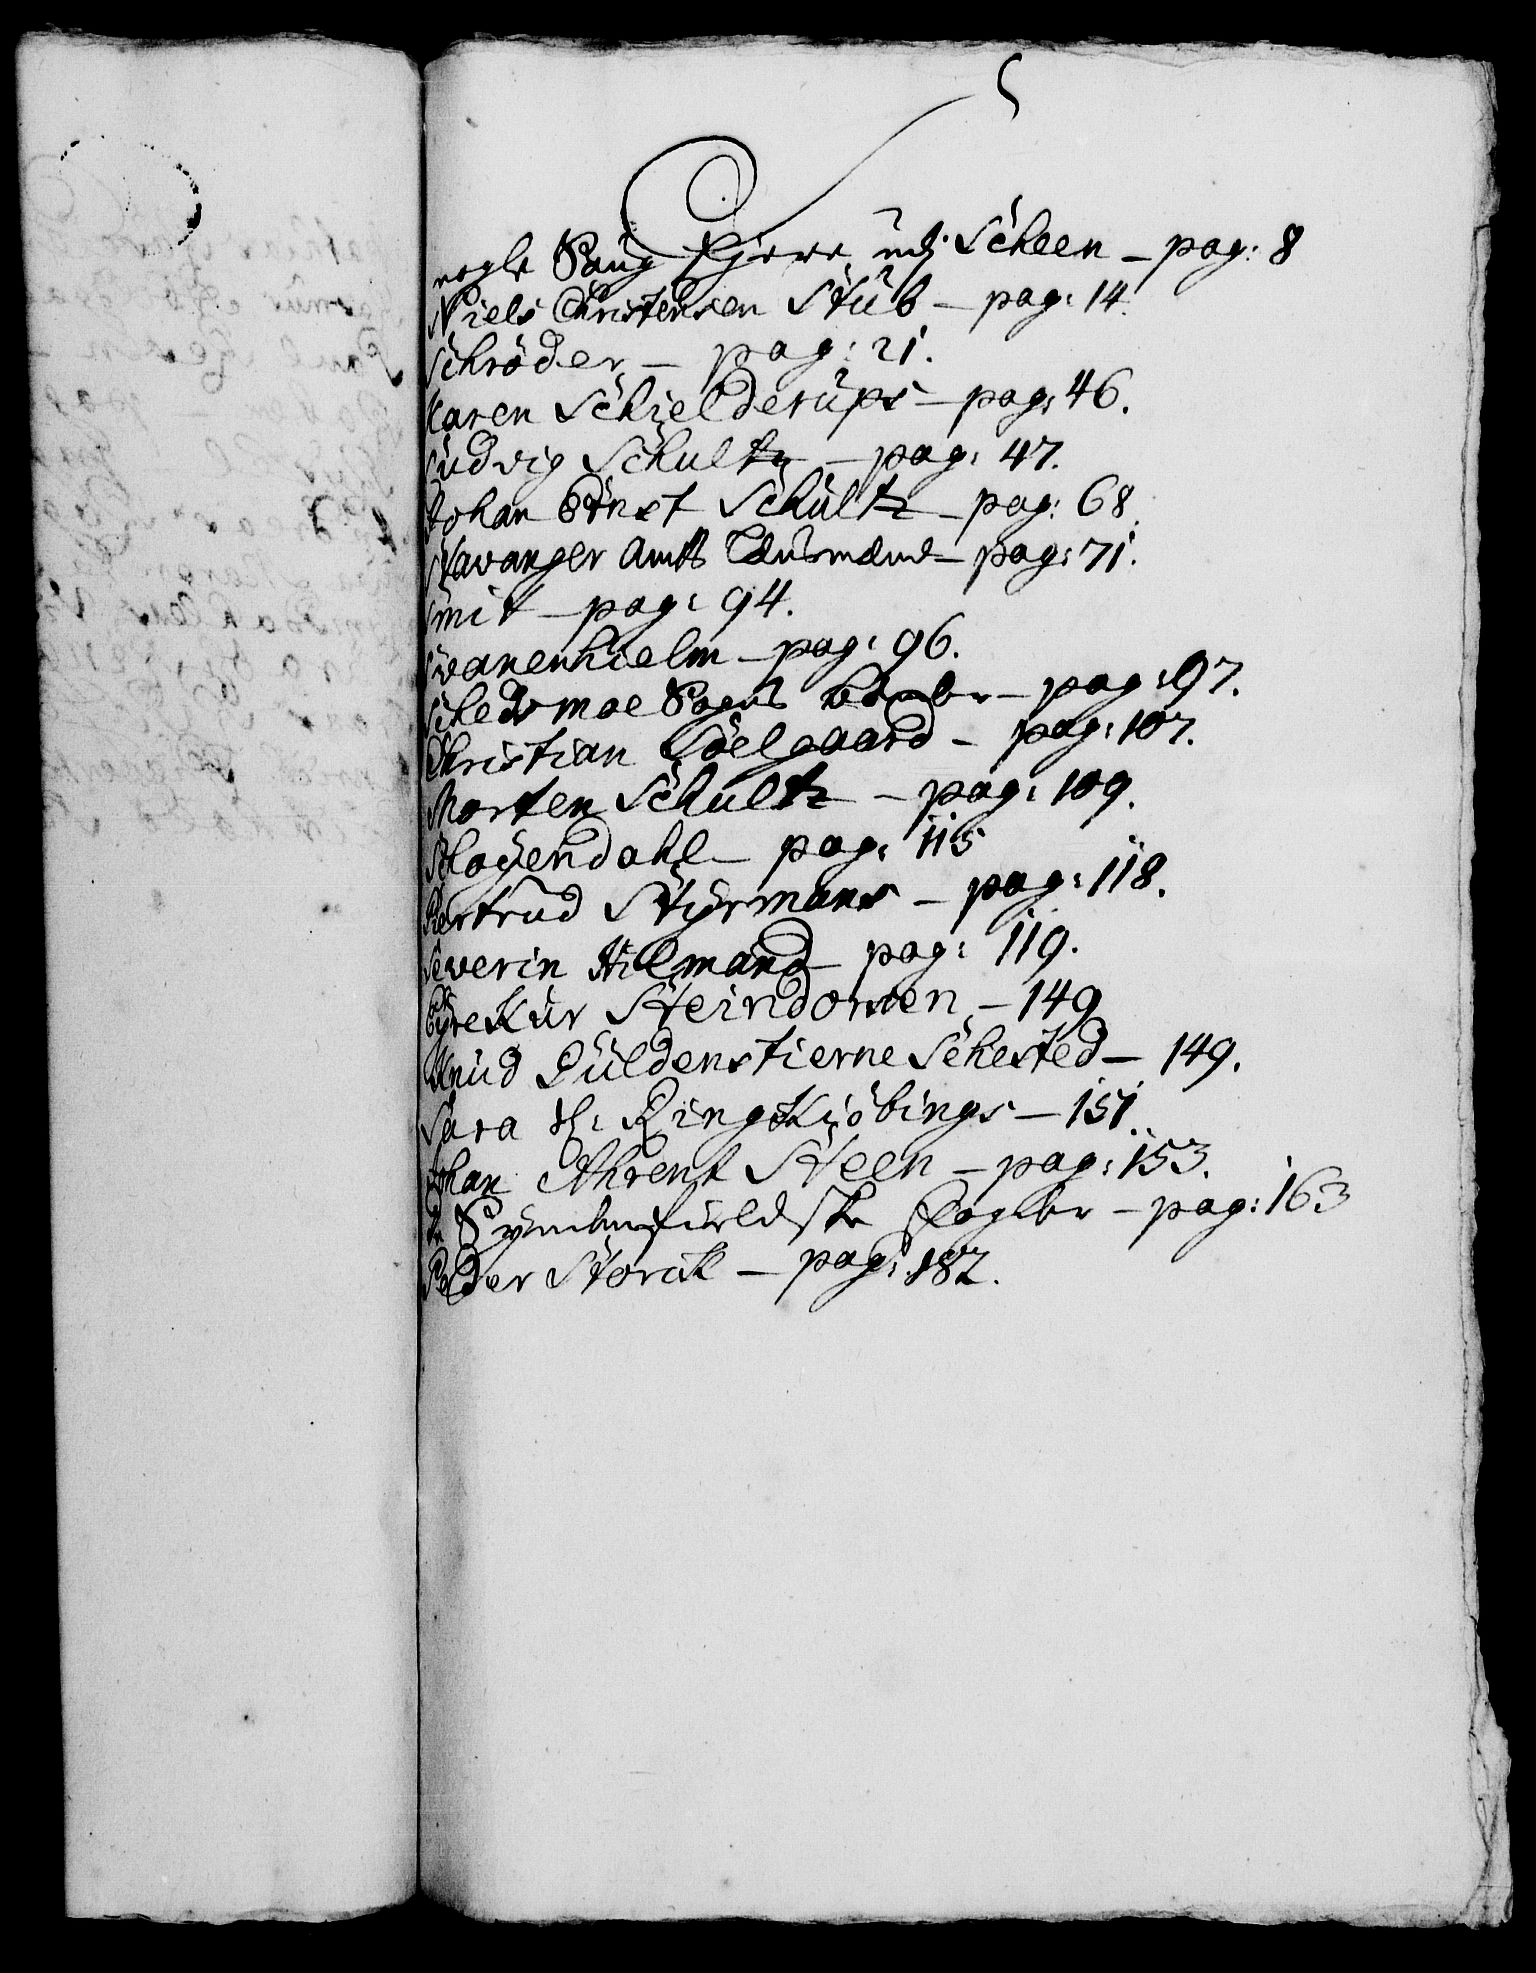 S
nogle Saug Ejere udj Scheen – pag: 8
Niels Christensen Stüb – pag: 14.
Schrøder – pag: 21.
Karen Schielderüps – pag: 46.
Ludvig Schultz – pag: 47.
Johan Ernst Schültz – pag: 68.
Stavanger Amts – pag: 71.
Smit – pag: 94.
Svanenhielm – pag: 96.
Schedsmoe Sogns – pag: 97.
Christian Søelgaard – pag: 107.
Morten Schultz – pag: 109.
Sloyendahl – pag: 115
Giertrud Styrmans – pag: 118.
Severin Hilmand – pag: 119.
Steindorsen – 149
Knud Güldenstierne Sehested – 149.
Sara Sl: Ringkiöbings – 151.
Johan Ahrent Steen – pag: 153.
de Syndenfieldske – pag: 163
Peder Storck – pag: 182.